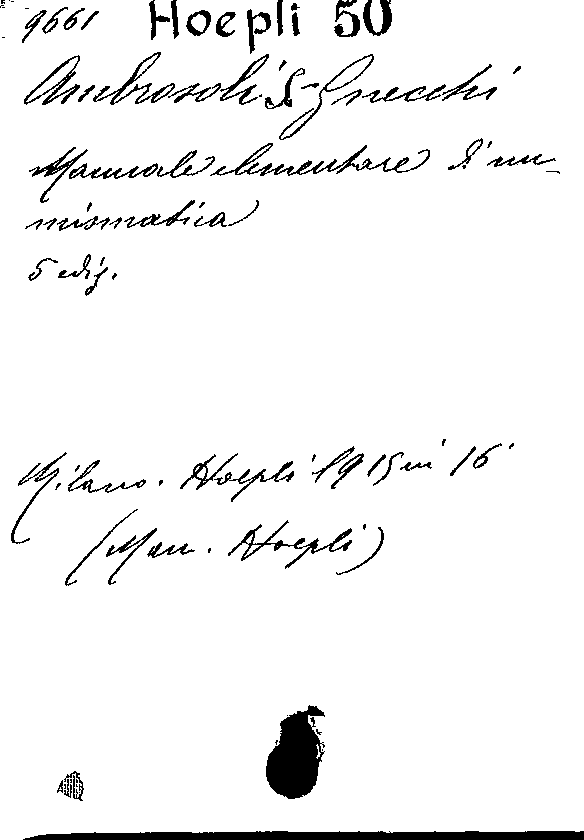 9661 Hoepli 50
Ambrosoli S-Gnecchi
Manuale elementare di nu-
mismatica
5 ediz.
Milano. Hoepli 1915 in 16°
(Man. Hoepli)